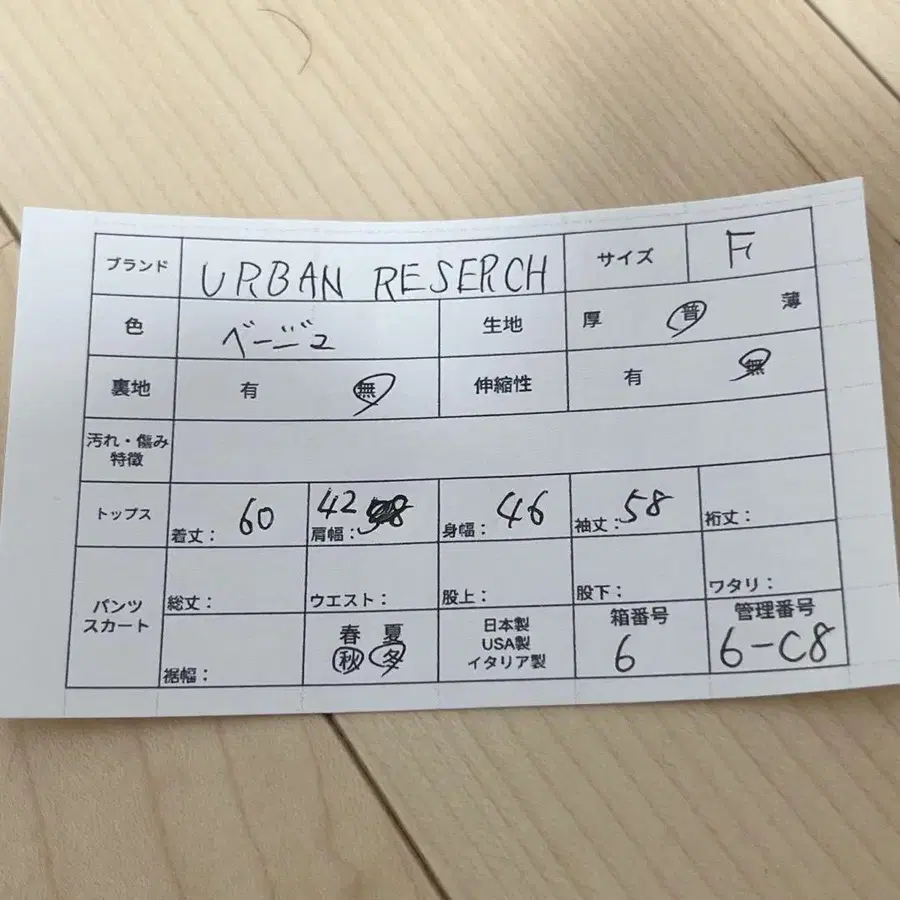 ブランド URBAN RESERCH サイズ F
色 ベージュ 生地 厚 普 薄
裏地 有 無 伸縮性 有 無
汚れ・傷み
特徴
トップス 着丈: 60 肩幅: 42 身幅: 46 袖丈: 58 裄丈:
パンツ
スカート
総丈: ウエスト: 股上: 股下: ワタリ:
裾幅:
春 夏
秋 冬
日本製
USA製
イタリア製
箱番号
6
管理番号
6-C8